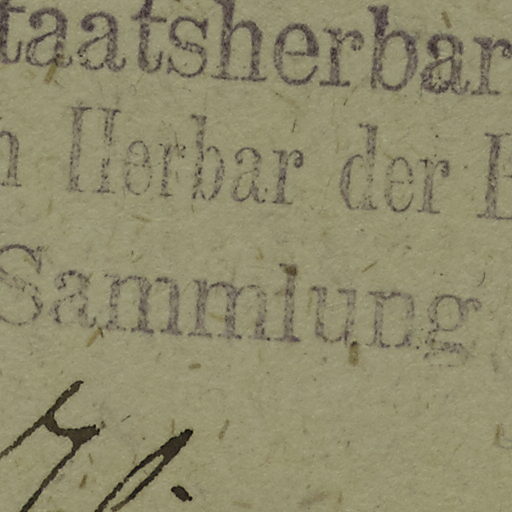 taatsherbar
Herbar der
Sammlung